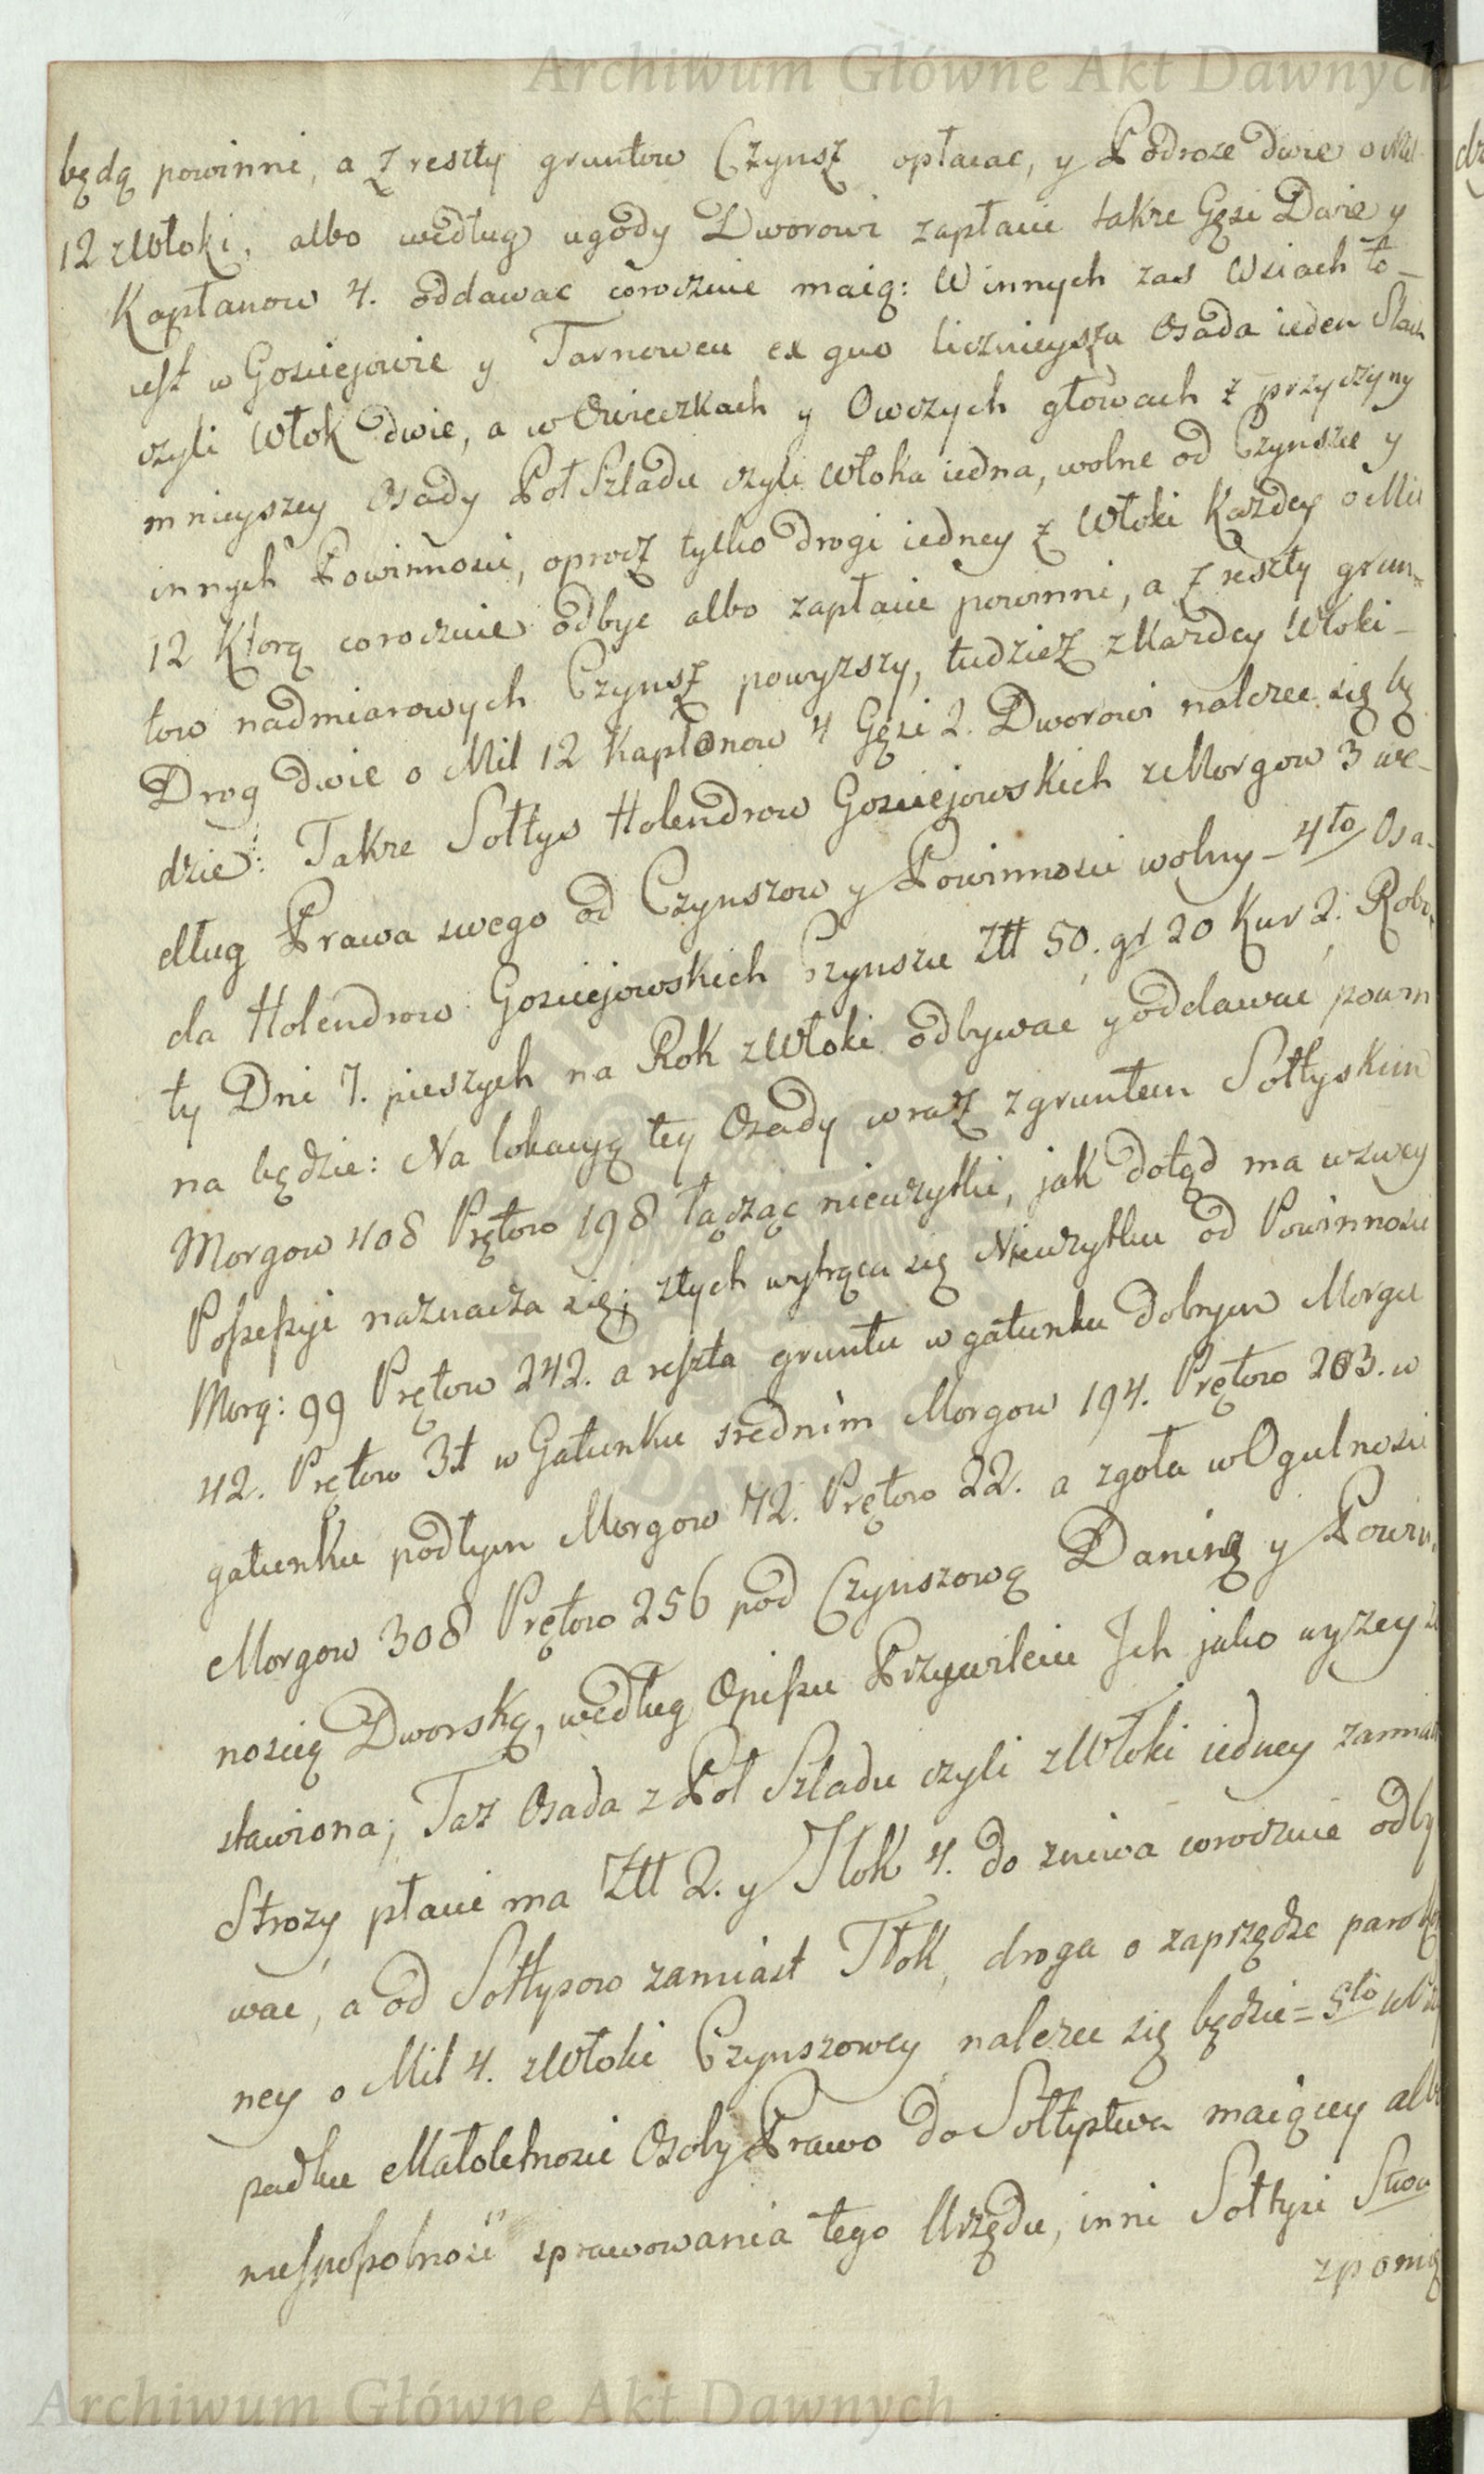 Archiwum Główne Akt Dawnych
będą powinni, a z reszty gruntow Czynsz opłacac, y Podroze dwie o Mil
12 z Włoki, albo według ugody Dworowi zapłacic takze Gęsi Dwie y
Kapłanow 4. oddawac corocznie maią: W innych zas Wsiach to
iest w Gosciejowie y Tarnowcu ex quo licznieysza Osada ieden Slad
czyli Włok dwie, a w Owieczkach y Owczych głowach z przyczyny
mnieyszey Osady Poł Szladu czyli Włoka iedna, wolne od Czynszu y
innych Powinnosci, oprocz tylko drogi iedney z Włoki Kazdey o Mil
12 Ktorą corocznie odbyc albo zapłacic powinni, a z reszty grun=
tow nadmiarowych Czynsz powyzszy, tudziez z Kazdey Włoki
Drog dwie o Mil 12 Kapłonow 4 Gęsi 2. Dworowi nalezec się bę
dzie: Takze Sołtys Holendrow Gosciejowskich z Morgow 3 we-
dług Prawa swego od Czynszow y Powinnosci wolny – 4to Osa-
da Holendrow Gosciejowskich Czynszu Złł 50. gr 20 Kur 2. Robo-
ty Dni 7. pieszych na Rok z Włoki odbywac y oddawac powin
na będzie: Na lokacyą tey Osady wraz z gruntem Sołtyskim
Morgow 408 Prętow 198 łącząc nieuzytki, jak dotąd ma w swey
Possessyi naznacza się; z tych wytrąca się Nieuzytku od Powinnosci
Morg: 99 Prętow 242. a reszta gruntu w gatunku dobrym Morgu
42. Prętow 31 w Gatunku srednim Morgow 194. Prętow 203. w
gatunku podłym Morgow 72. Prętow 22. a zgoła w Ogulnosci
Morgow 308 Prętow 256 pod Czynszową Daniną y Powin-
noscią Dworską, według Opisu Przywileiu Ich jako wyzey
stawiona; Taz Osada z Poł Szladu czyli z Włoki iedney zamiast
Strozy płacic ma Złł 2. y Tłok 4. do zniwa corocznie odby
wac, a od Sołtysow zamiast Tłok, droga o zaprzędze parokon
ney o Mil 4. z Włoki Czynszowey nalezec się będzie = 5to w Przy
padku Małoletnosci Osoby Prawo do Sołtystwa maiącey albo
niesposobnosci sprawowania tego Urzędu, inni Sołtysi
z pomię
Archiwum Główne Akt Dawnych